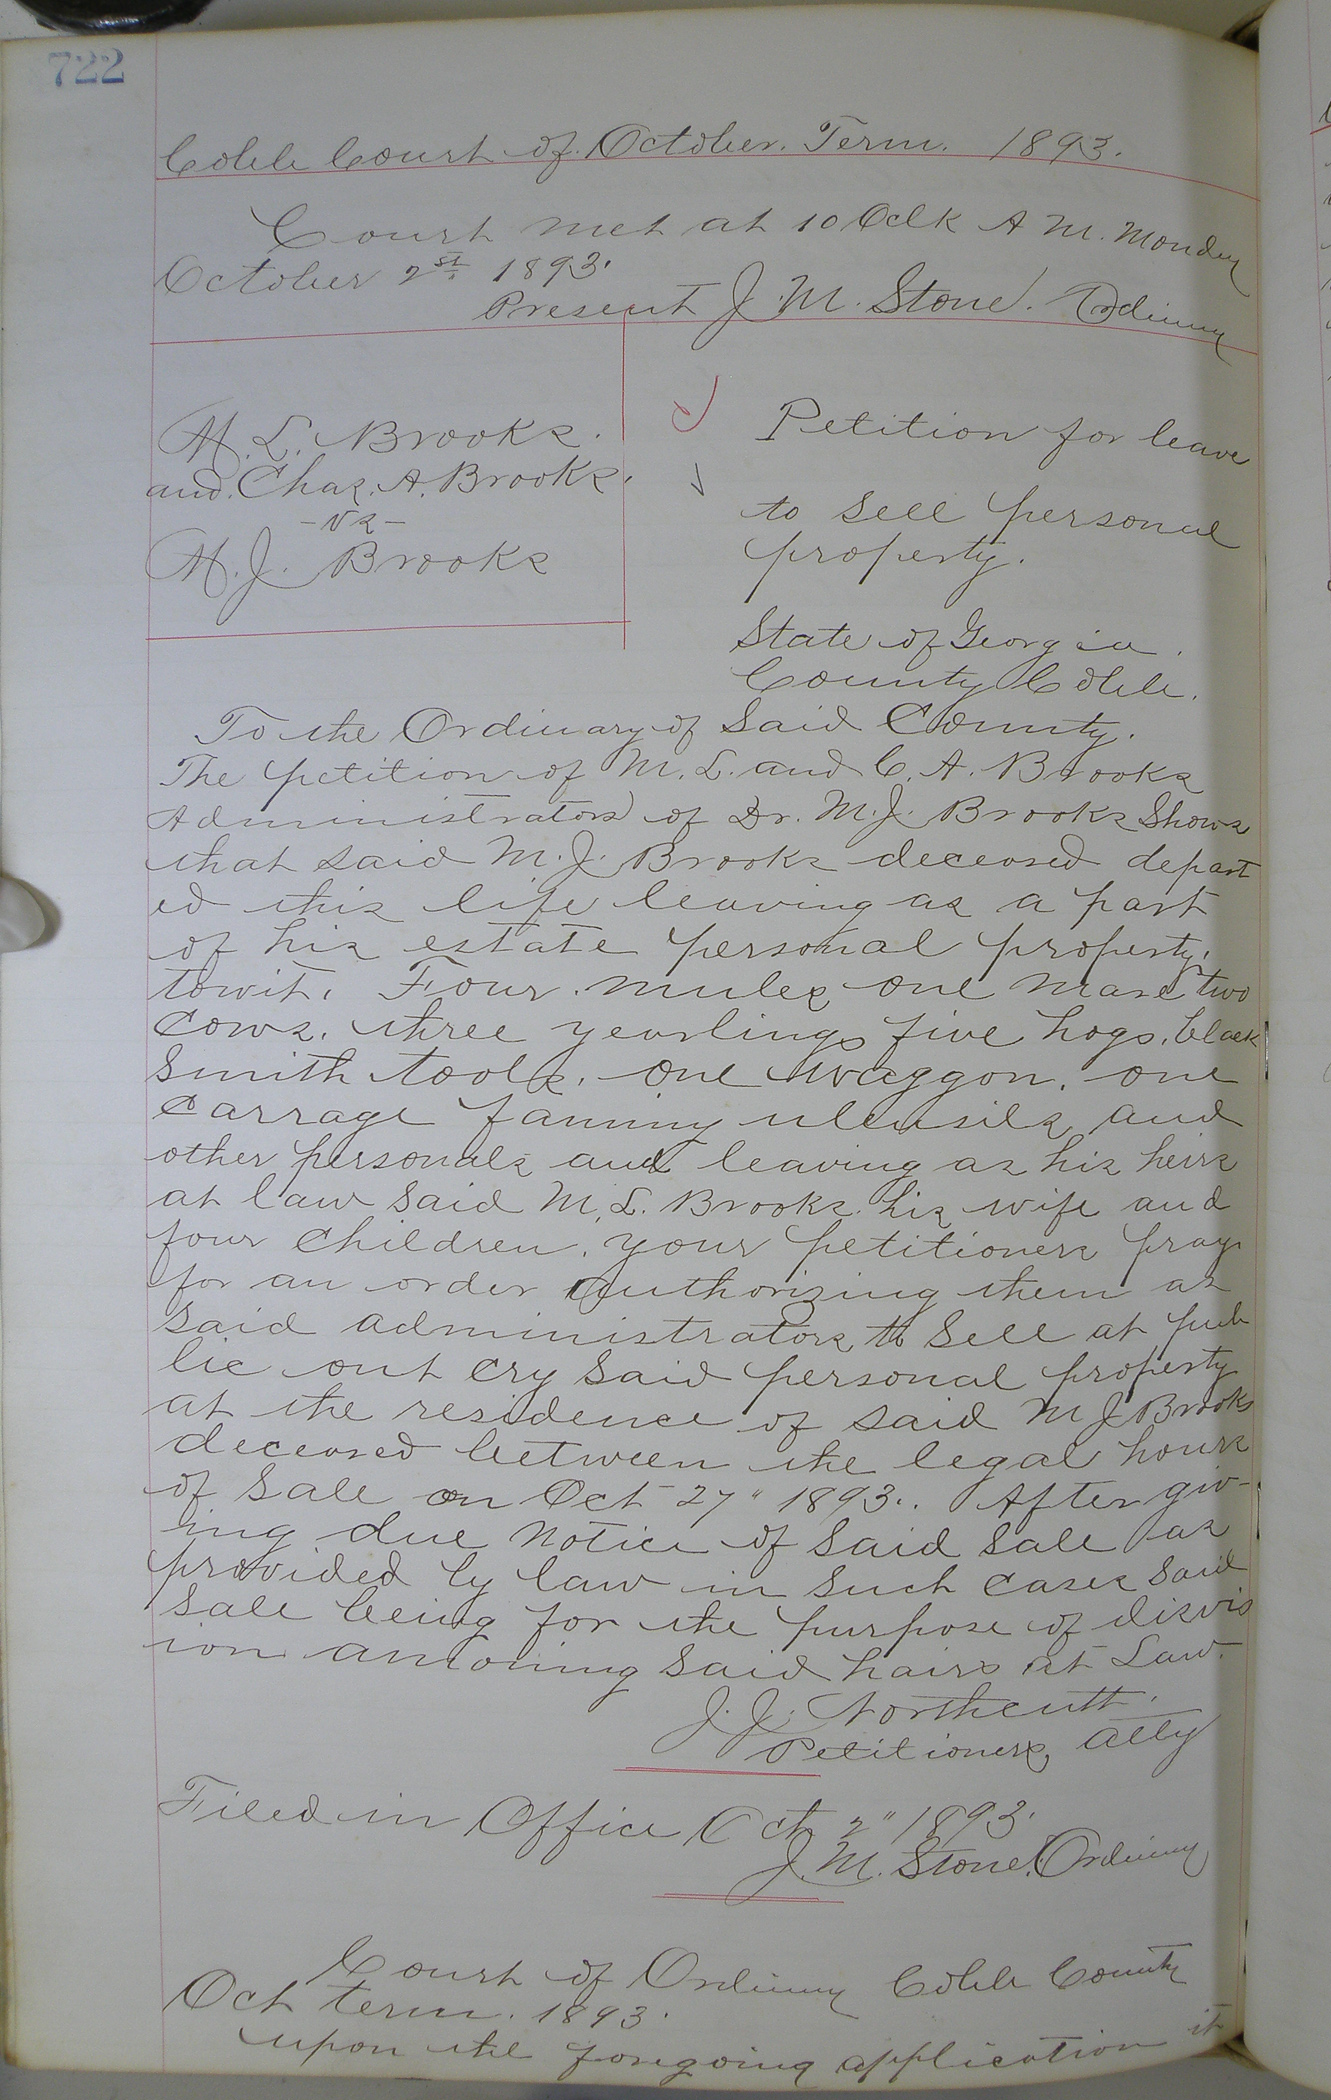 722
Cobb Court of October. Term. 1893.
Court met at 10 Oclk A M. Monday
October 2st 1893.
Present J. M. Stone. Ordinary
M. L. Brooks.
and. Chas. A. Brooks.
- vs -
M. J. Brooks
Petition for leave
to sell personal
property.
State of Georgia.
County Cobb.
To the Ordinary of Said County.
The petition of M. L. and C. A. Brooks
Administrators of Dr. M. J. Brooks Shows
that said M. J. Brooks deceased depart
ed this life leaving as a part
of his estate personal property,
towit. Four mules one mare two
Cows. three yearlings five hogs. black
Smith tools. one waggon. one
Carrage faming utensils and
other personals and leaving as his heirs
at law Said M. L. Brooks. his wife and
four Children. your petitioners pray
for an order authorizing them as
Said administrators to Sell at pub
lic out Cry Said personal property
at the residence of said M J Brooks
deceased between the legal hours
of Sale on Oct 27" 1893.. After giv-
ing due Notice of Said Sale as
provided by law in Such Cases Said
Sale being for the purpose of disvis
ion amoning Said hairs at Law.
J. J. Northcutt.
Petitioners, Atty
Filed in Office Oct 2" 1893.
J. M. Stone. Ordinary
Court of Ordinary Cobb County
Oct term. 1893.
upon the foregoing application it